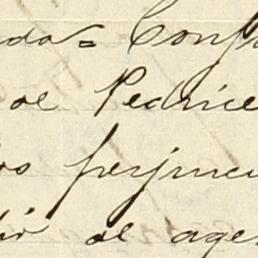 do= Conf
de Pedrice
os perjuic
dió de age